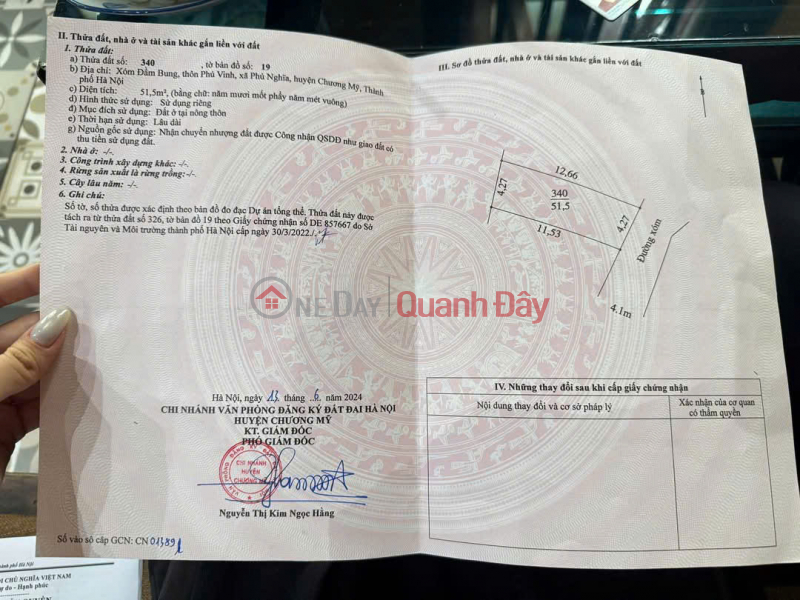 II. Thửa đất, nhà ở và tài sản khác gắn liền với đất
1. Thửa đất:
a) Thửa đất số: 340 , tờ bản đồ số: 19
b) Địa chỉ: Xóm Đầm Bung, thôn Phú Vinh, xã Phú Nghĩa, huyện Chương Mỹ, Thành
phố Hà Nội
c) Diện tích: 51,5m², (bằng chữ: năm mươi mốt phẩy năm mét vuông)
d) Hình thức sử dụng: Sử dụng riêng
đ) Mục đích sử dụng: Đất ở tại nông thôn
e) Thời hạn sử dụng: Lâu dài
g) Nguồn gốc sử dụng: Nhận chuyển nhượng đất được Công nhận QSDĐ như giao đất có
thu tiền sử dụng đất.
2. Nhà ở: -/-.
3. Công trình xây dựng khác: -/-.
4. Rừng sản xuất là rừng trồng:-/-.
5. Cây lâu năm: -/-.
6. Ghi chú:
Số tờ, số thửa được xác định theo bản đồ đo đạc Dự án tổng thể. Thửa đất này được
tách ra từ thửa đất số 326, tờ bản đồ 19 theo Giấy chứng nhận số DE 857667 do Sở
Tài nguyên và Môi trường thành phố Hà Nội cấp ngày 30/3/2022./.
Hà Nội, ngày 13 tháng 6 năm 2024
CHI NHÁNH VĂN PHÒNG ĐĂNG KÝ ĐẤT ĐAI HÀ NỘI
HUYỆN CHƯƠNG MỸ
KT. GIÁM ĐỐC
PHÓ GIÁM ĐỐC
CHI NHÁNH
HUYỆN
CHƯƠNG MỸ
Nguyễn Thị Kim Ngọc Hằng
Số vào sổ cấp GCN: CN 01389
III. Sơ đồ thửa đất, nhà ở và tài sản khác gắn liền với đất
12,66
4,27
340
51,5
4,27
11,53
Đường xóm
4.1m
ONEDAY Quanh Đây
IV. Những thay đổi sau khi cấp giấy chứng nhận
Nội dung thay đổi và cơ sở pháp lý
Xác nhận của cơ quan
có thẩm quyền
CHỦ NGHĨA VIỆT NAM
do - Hạnh phúc